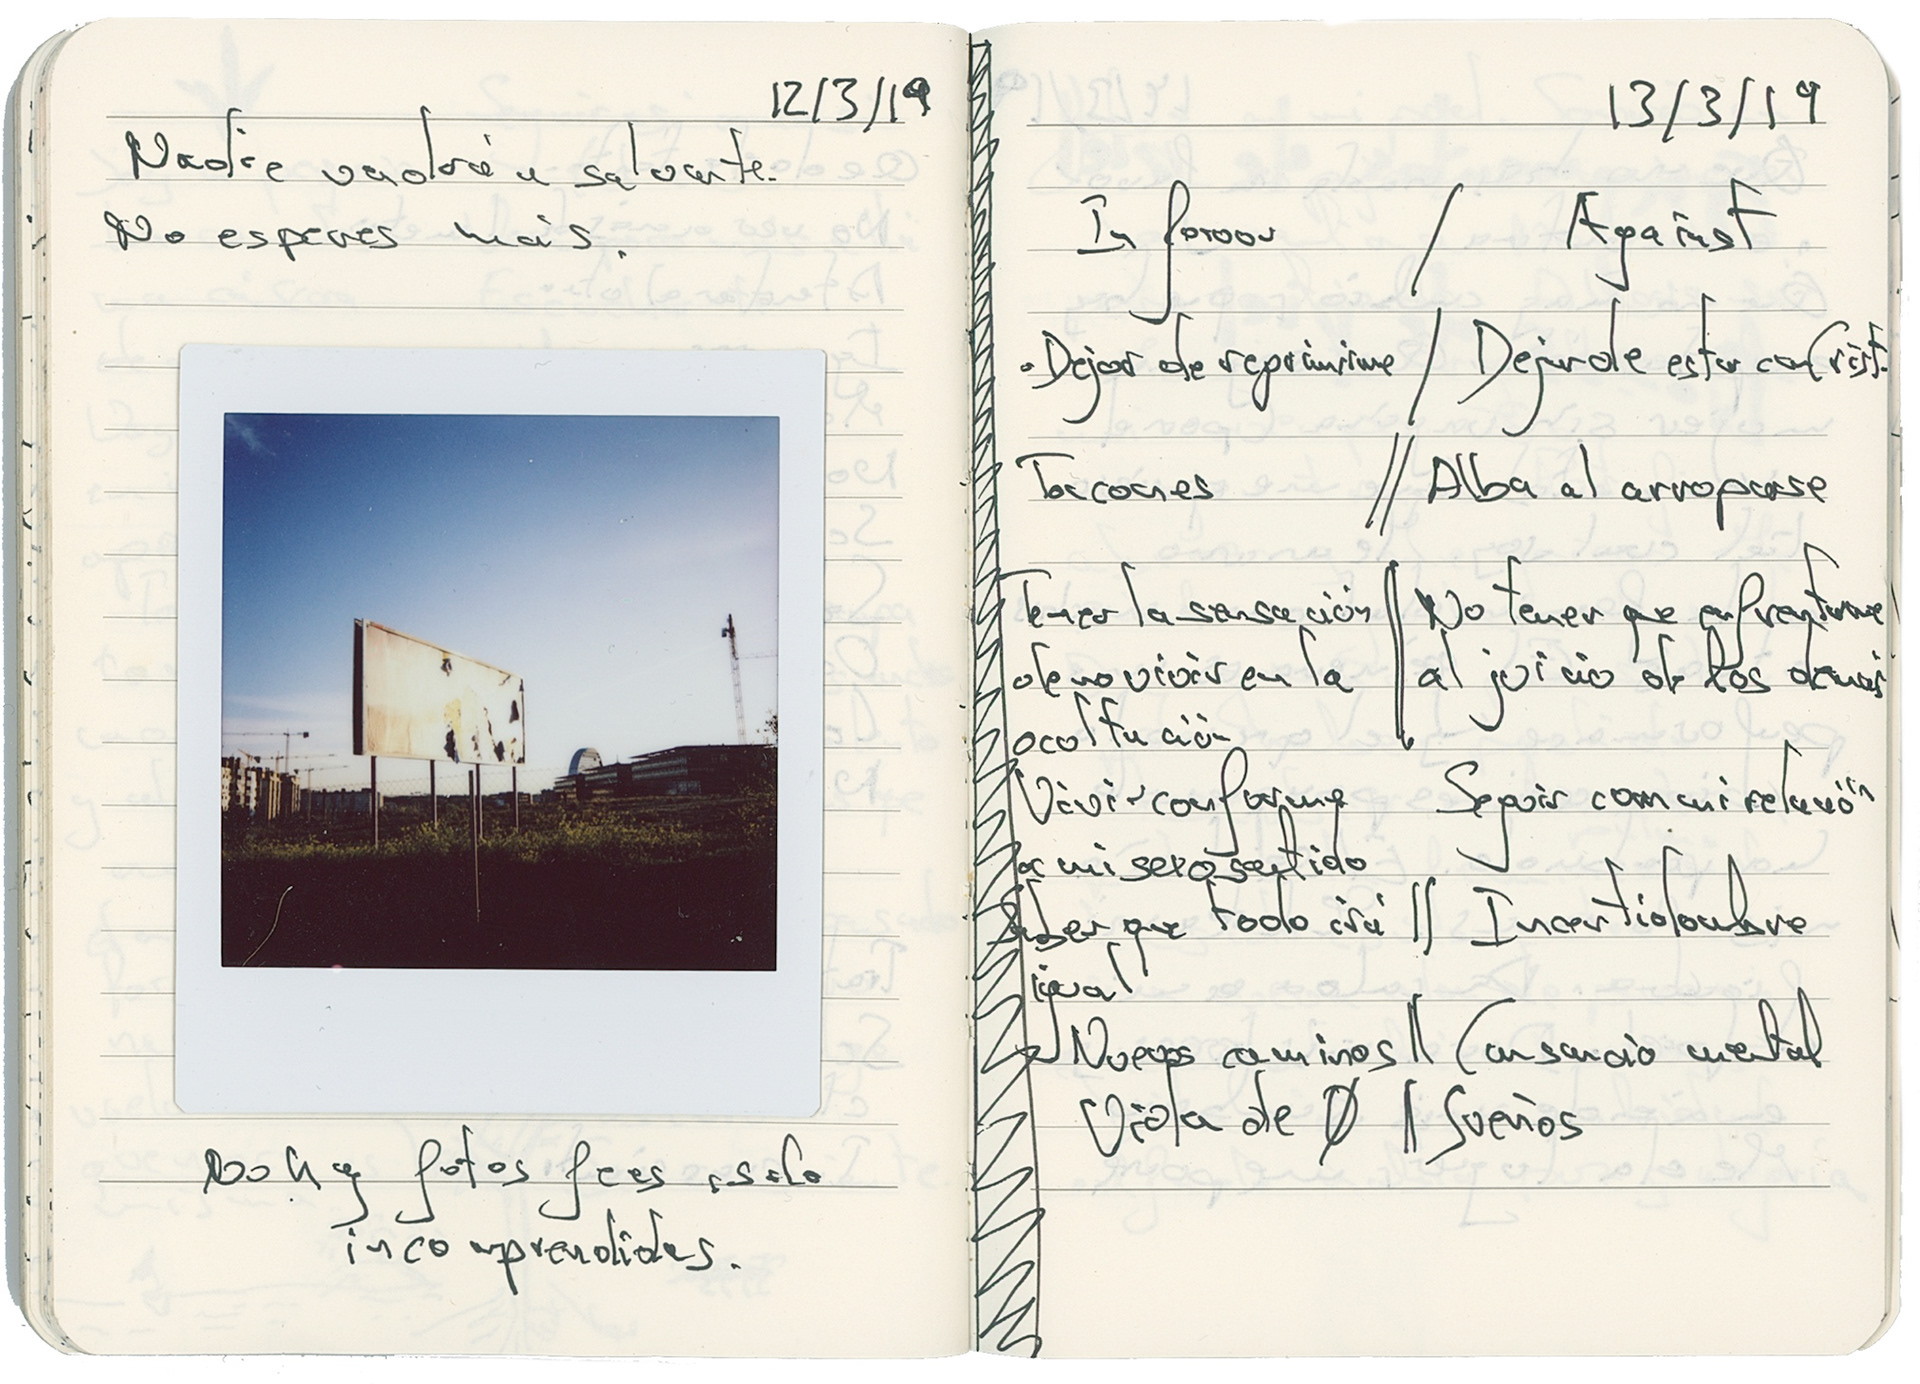 12/3/19
Nadie vendrá a salvarte.
No esperes más.
No hay fotos feas, solo
incomprendidas.
13/3/19
In favour / Against
·Dejar de reprimirme / Dejar de estar con Crist.
Tacones // Alba al arroparse
Tener la sensación // No tener que enfrentarme
de no vivir en la // al juicio de los demás
ocultación
Vivir conforme Seguir con mi relación
a mi sexo sentido
Saber que todo irá // Incertidumbre
igual
Nuevos caminos // Cansancio mental
Vida de Ø // Sueños